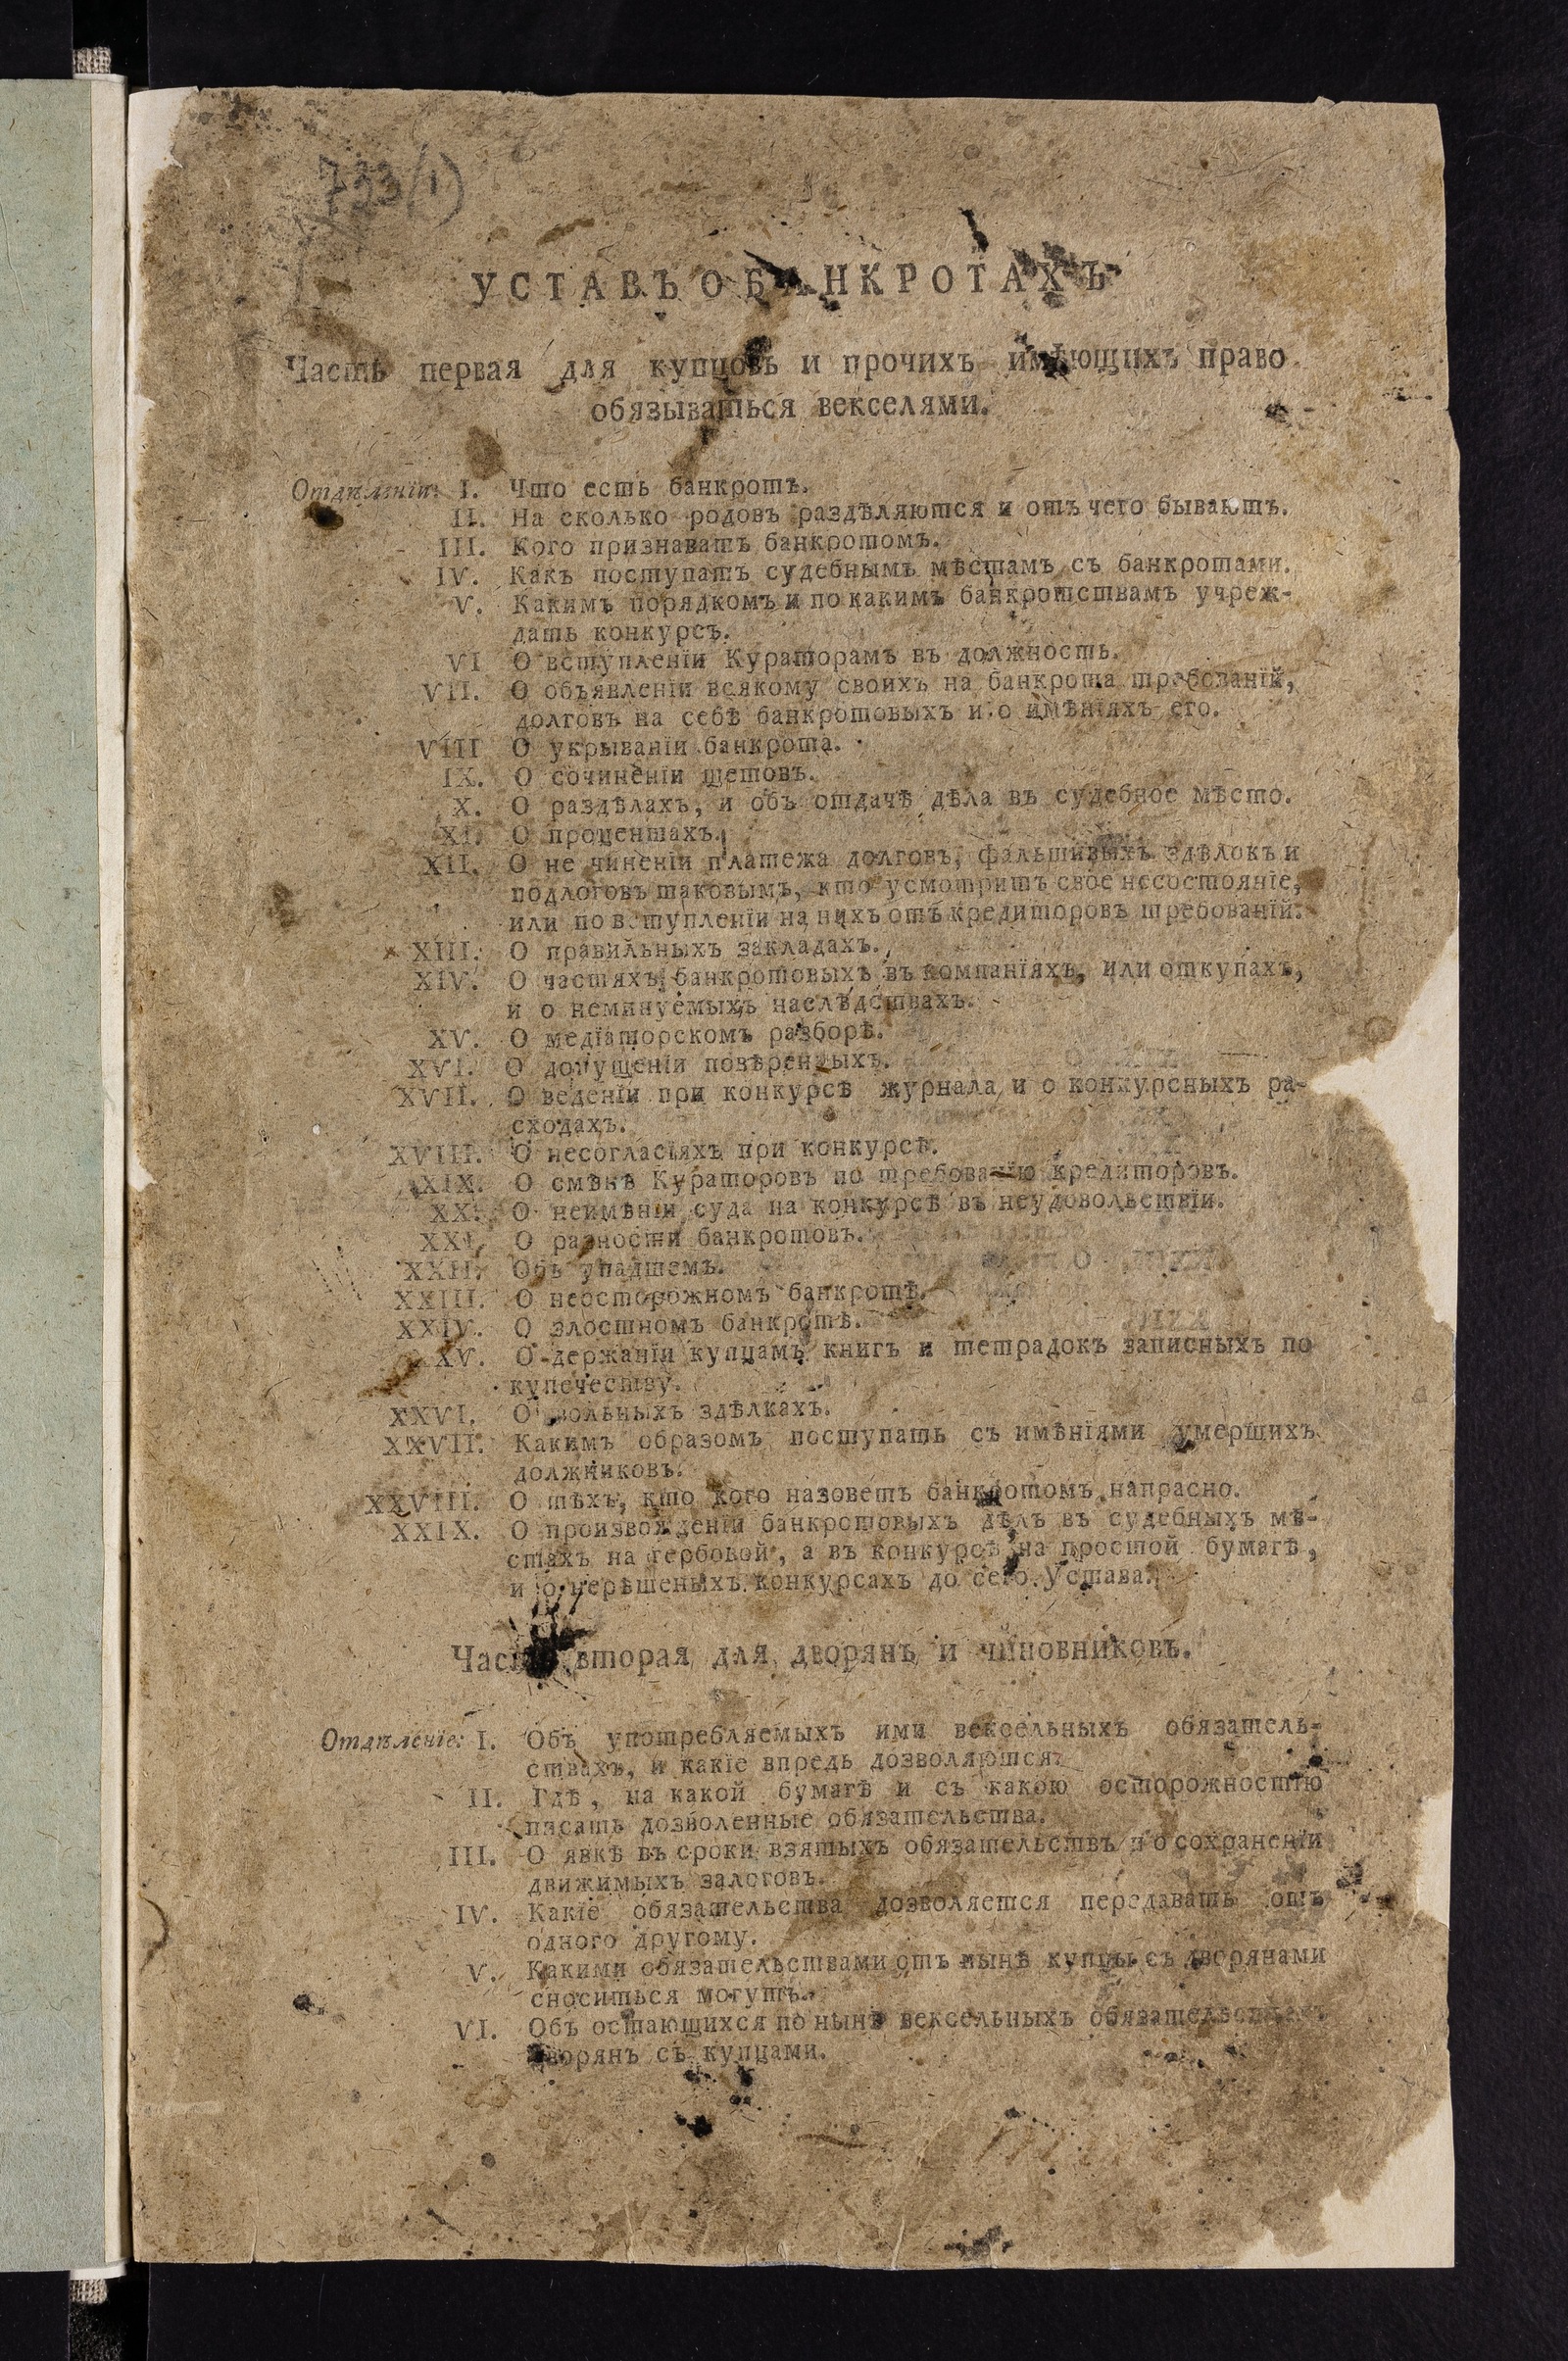 733(1)
УСТАВЪ О БАНКРОТАХЪ
Часть первая для купцовъ и прочихъ имѣющихъ право
обязываться векселями.
Отдѣленіе: I. Что есть банкротъ.
II. На сколько родовъ раздѣляются и отъ чего бываютъ.
III. Кого признавать банкротомъ.
IV. Какъ поступать судебнымъ мѣстамъ съ банкротами.
V. Какимъ порядкомъ и по какимъ банкротствамъ учреж-
дать конкурсъ.
VI О вступленїи Кураторамъ въ должность.
VII. О объявленїи всякому своихъ на банкрота требованїй,
долговъ на себѣ банкротовыхъ и о имѣнїяхъ его.
VIII О укрыванїи банкрота.
IX. О сочиненїи щетовъ.
X. О раздѣлахъ, и объ отдачѣ дѣла въ судебное мѣсто.
XI. О процентахъ.
XII. О не чиненїи платежа долговъ, фальшивыхъ здѣлокъ и
подлоговъ таковымъ, кто усмотритъ свое несостоянїе,
или по вступленїи на нихъ отъ кредиторовъ требованїй.
XIII. О правильныхъ закладахъ.
XIV. О частяхъ банкротовыхъ въ компанїяхъ, или откупахъ,
и о неминуемыхъ наслѣдствахъ.
XV. О медїаторскомъ разборѣ.
XVI. О допущенїи повѣренныхъ.
XVII. О веденїи при конкурсѣ журнала и о конкурсныхъ ра-
сходахъ.
XVIII. О несогласїяхъ при конкурсѣ.
XIX. О смѣнѣ Кураторовъ по требованїю кредиторовъ.
XX. О неимѣнїи суда на конкурсѣ въ неудовольствїи.
XXI. О разности банкротовъ.
XXII. Объ упадшемъ.
XXIII. О неосторожномъ банкротѣ.
XXIV. О злостномъ банкротѣ.
XV. О держанїи купцамъ книгъ и тетрадокъ записныхъ по
купечеству.
XXVI. О вольныхъ здѣлкахъ.
XXVII. Какимъ образомъ поступать съ имѣнїями умершихъ
должниковъ.
XXVIII. О тѣхъ, кто кого назоветъ банкротомъ напрасно.
XXIX. О произвожденїи банкротовыхъ дѣлъ въ судебныхъ мѣ-
стахъ на гербовой, а въ конкурсѣ на простой бумагѣ,
и о нерѣшеныхъ конкурсахъ до сего Устава.
Часть вторая для дворянъ и чиновниковъ.
Отдѣленїе: I. Объ употребляемыхъ ими вексельныхъ обязатель-
ствахъ, и какїе впредь дозволяются.
II. Гдѣ, на какой бумагѣ и съ какою осторожностїю
писать дозволенные обязательства.
III. О явкѣ въ сроки взятыхъ обязательствъ и о сохраненїи
движимыхъ залоговъ.
IV. Какїе обязательства дозволяется передавать отъ
одного другому.
V. Какими обязательствами отъ нынѣ купцы съ дворянами
сноситься могутъ.
VI. Объ остающихся по нынѣ вексельныхъ обязательствахъ
дворянъ съ купцами.